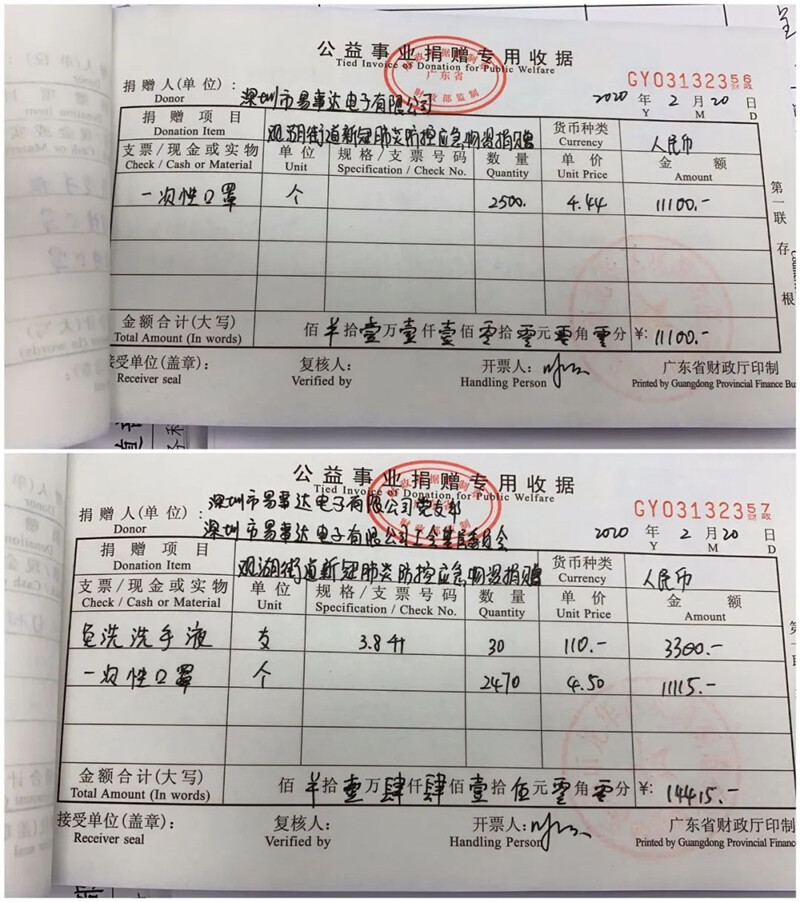 公益事业捐赠专用收据
Tied Invoice of Donation for Public Welfare
广东省
财政部监制
GY03132356
捐赠人(单位): 深圳市易事达电子有限公司
Donor
2020 年 2 月 20 日
Y M D
捐赠项目 观湖街道新冠肺炎防控应急物资捐赠 货币种类 人民币
Donation Item Currency
支票/现金或实物 单位 规格/支票号码 数量 单价 金额
Check / Cash or Material Unit Specification / Check No. Quantity Unit Price Amount
一次性口罩 个 2500. 4.44 11100.-
第一联 存根
金额合计(大写) 佰 拾壹万壹仟壹佰零拾零元零角零分 ¥: 11100.-
Total Amount (In words)
接受单位(盖章): 复核人: 开票人: 广东省财政厅印制
Receiver seal Verified by Handling Person Printed by Guangdong Provincial Finance Bu
公益事业捐赠专用收据
Tied Invoice of Donation for Public Welfare
财政部监制
GY03132357
深圳市易事达电子有限公司党支部
捐赠人(单位): 深圳市易事达电子有限公司工会基层委员会
Donor
2020 年 2 月 20 日
Y M D
捐赠项目 观湖街道新冠肺炎防控应急物资捐赠 货币种类 人民币
Donation Item Currency
支票/现金或实物 单位 规格/支票号码 数量 单价 金额
Check / Cash or Material Unit Specification / Check No. Quantity Unit Price Amount
免洗洗手液 支 3.8升 30 110.- 3300.-
一次性口罩 个 2470 4.50 11115.-
金额合计(大写) 佰 拾壹万肆仟肆佰壹拾伍元零角零分 ¥: 14415.-
Total Amount (In words)
接受单位(盖章): 复核人: 开票人: 广东省财政厅印制
Receiver seal Verified by Handling Person Printed by Guangdong Provincial Finance